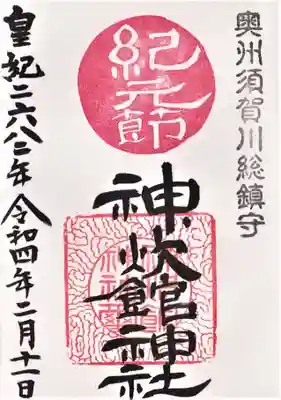 奥州須賀川総鎮守
紀元節
神炊館神社
皇紀二六八二年令和四年二月十一日